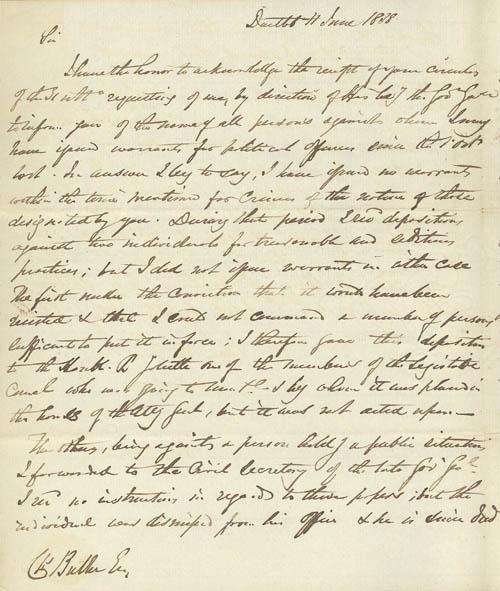 11 June 1838
Sir
I have the honor to acknowledge the receipt of your circular
of the requesting of me, by direction of His the
to inform you of the names of all persons against whom I may
have issued warrants for political offences since the
last. In answer I beg to say, I have issued no warrants
within the time mentioned for Crimes of the nature of those
designated by you. During that period I depositions
against two individuals for treasonable and seditious
practices; but I did not issue warrants in either case
The first under the Conviction that it would have been
resisted & that I could not command a number of persons
sufficient to put it in force; I therefore gave this deposition
to the one of the members of the Legislative
Council who was going to & by whom it was placed in
the hands of the Atty Genl, but it was not acted upon.
The other, being against a person holdg a public situation
I forwarded to the Civil Secretary of the late Govr Genl.
I no instructions in regard to these papers; but the
individual was dismissed from his office & he is since dead
Butler Esq